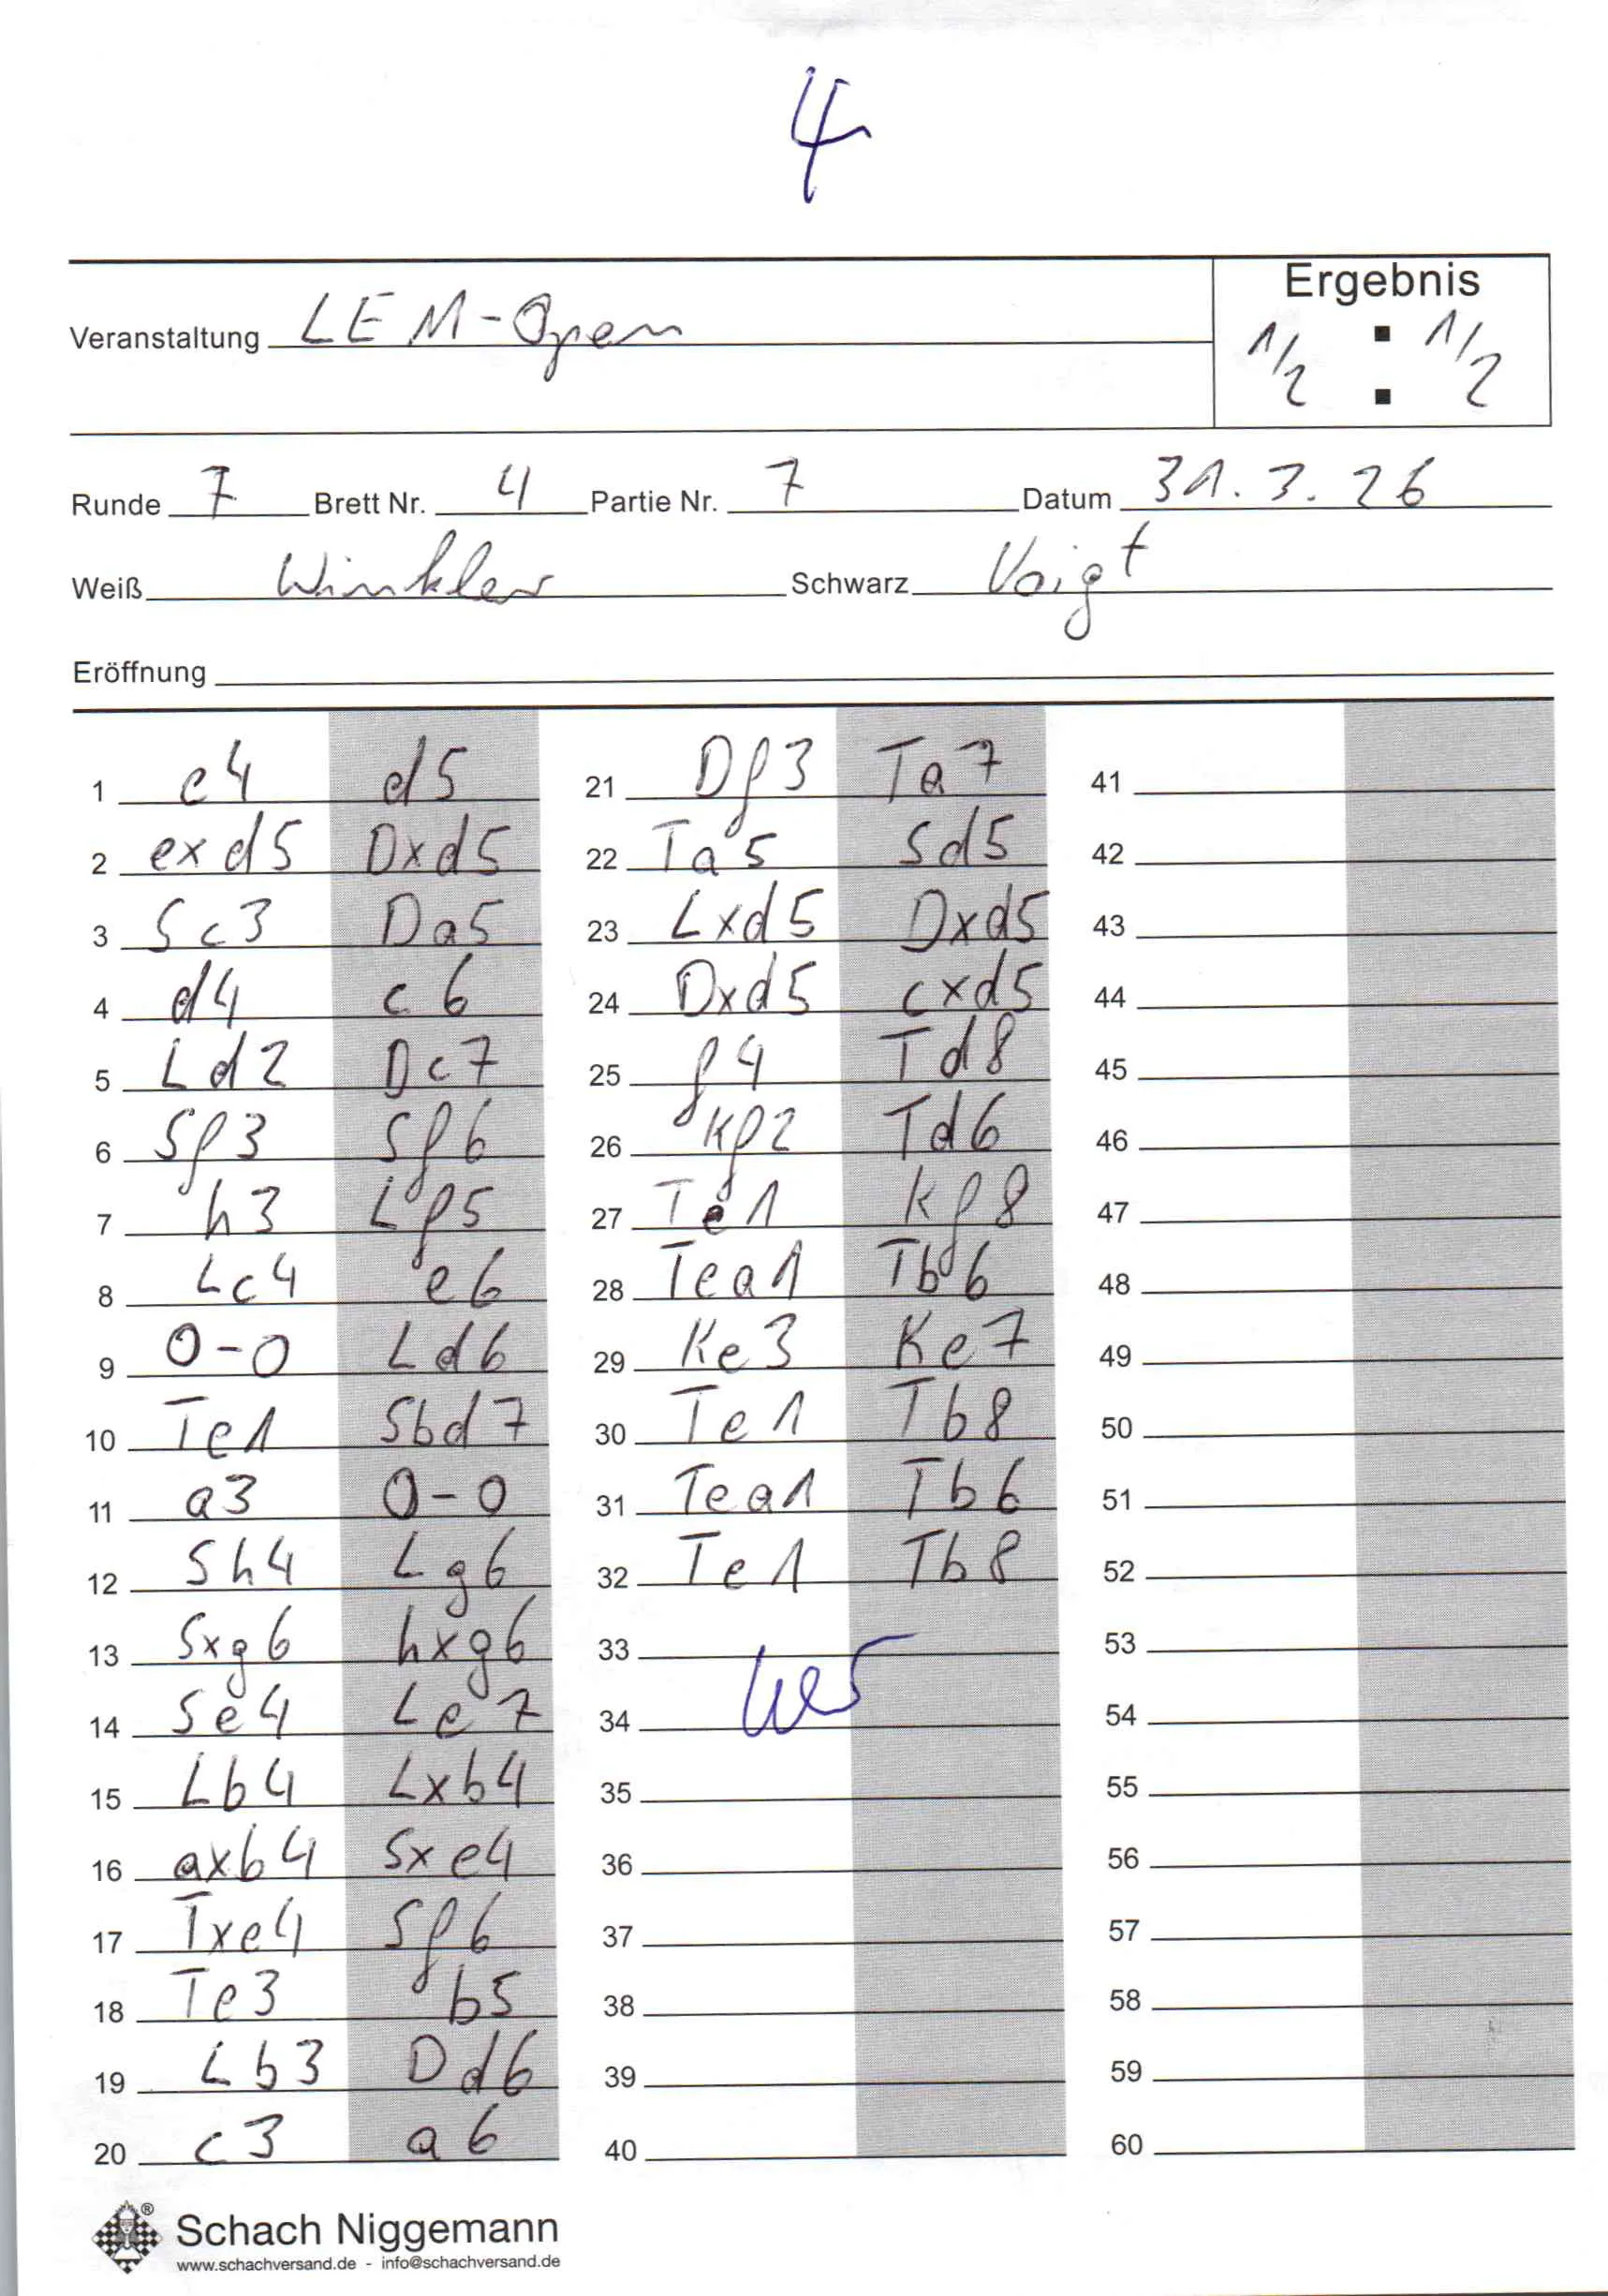 4
Ergebnis
Veranstaltung LEM-Open
1/2 : 1/2
Runde 7 Brett Nr. 4 Partie Nr. 7 Datum 31.3.26
Weiß Winkler Schwarz Voigt
Eröffnung
1 e4 d5
2 exd5 Dxd5
3 Sc3 Da5
4 d4 c6
5 Ld2 Dc7
6 Sf3 Sf6
7 h3 Lf5
8 Lc4 e6
9 0-0 Ld6
10 Te1 Sbd7
11 a3 0-0
12 Sh4 Lg6
13 Sxg6 hxg6
14 Se4 Le7
15 Lb4 Lxb4
16 axb4 Sxe4
17 Txe4 Sf6
18 Te3 b5
19 Lb3 Dd6
20 c3 a6
21 Df3 Ta7
22 Ta5 Sd5
23 Lxd5 Dxd5
24 Dxd5 cxd5
25 f4 Td8
26 Kf2 Td6
27 Te1 Kf8
28 Tea1 Tb6
29 Ke3 Ke7
30 Te1 Tb8
31 Tea1 Tb6
32 Te1 Tb8
33
34
35
36
37
38
39
40
41
42
43
44
45
46
47
48
49
50
51
52
53
54
55
56
57
58
59
60
Schach Niggemann
www.schachversand.de - info@schachversand.de